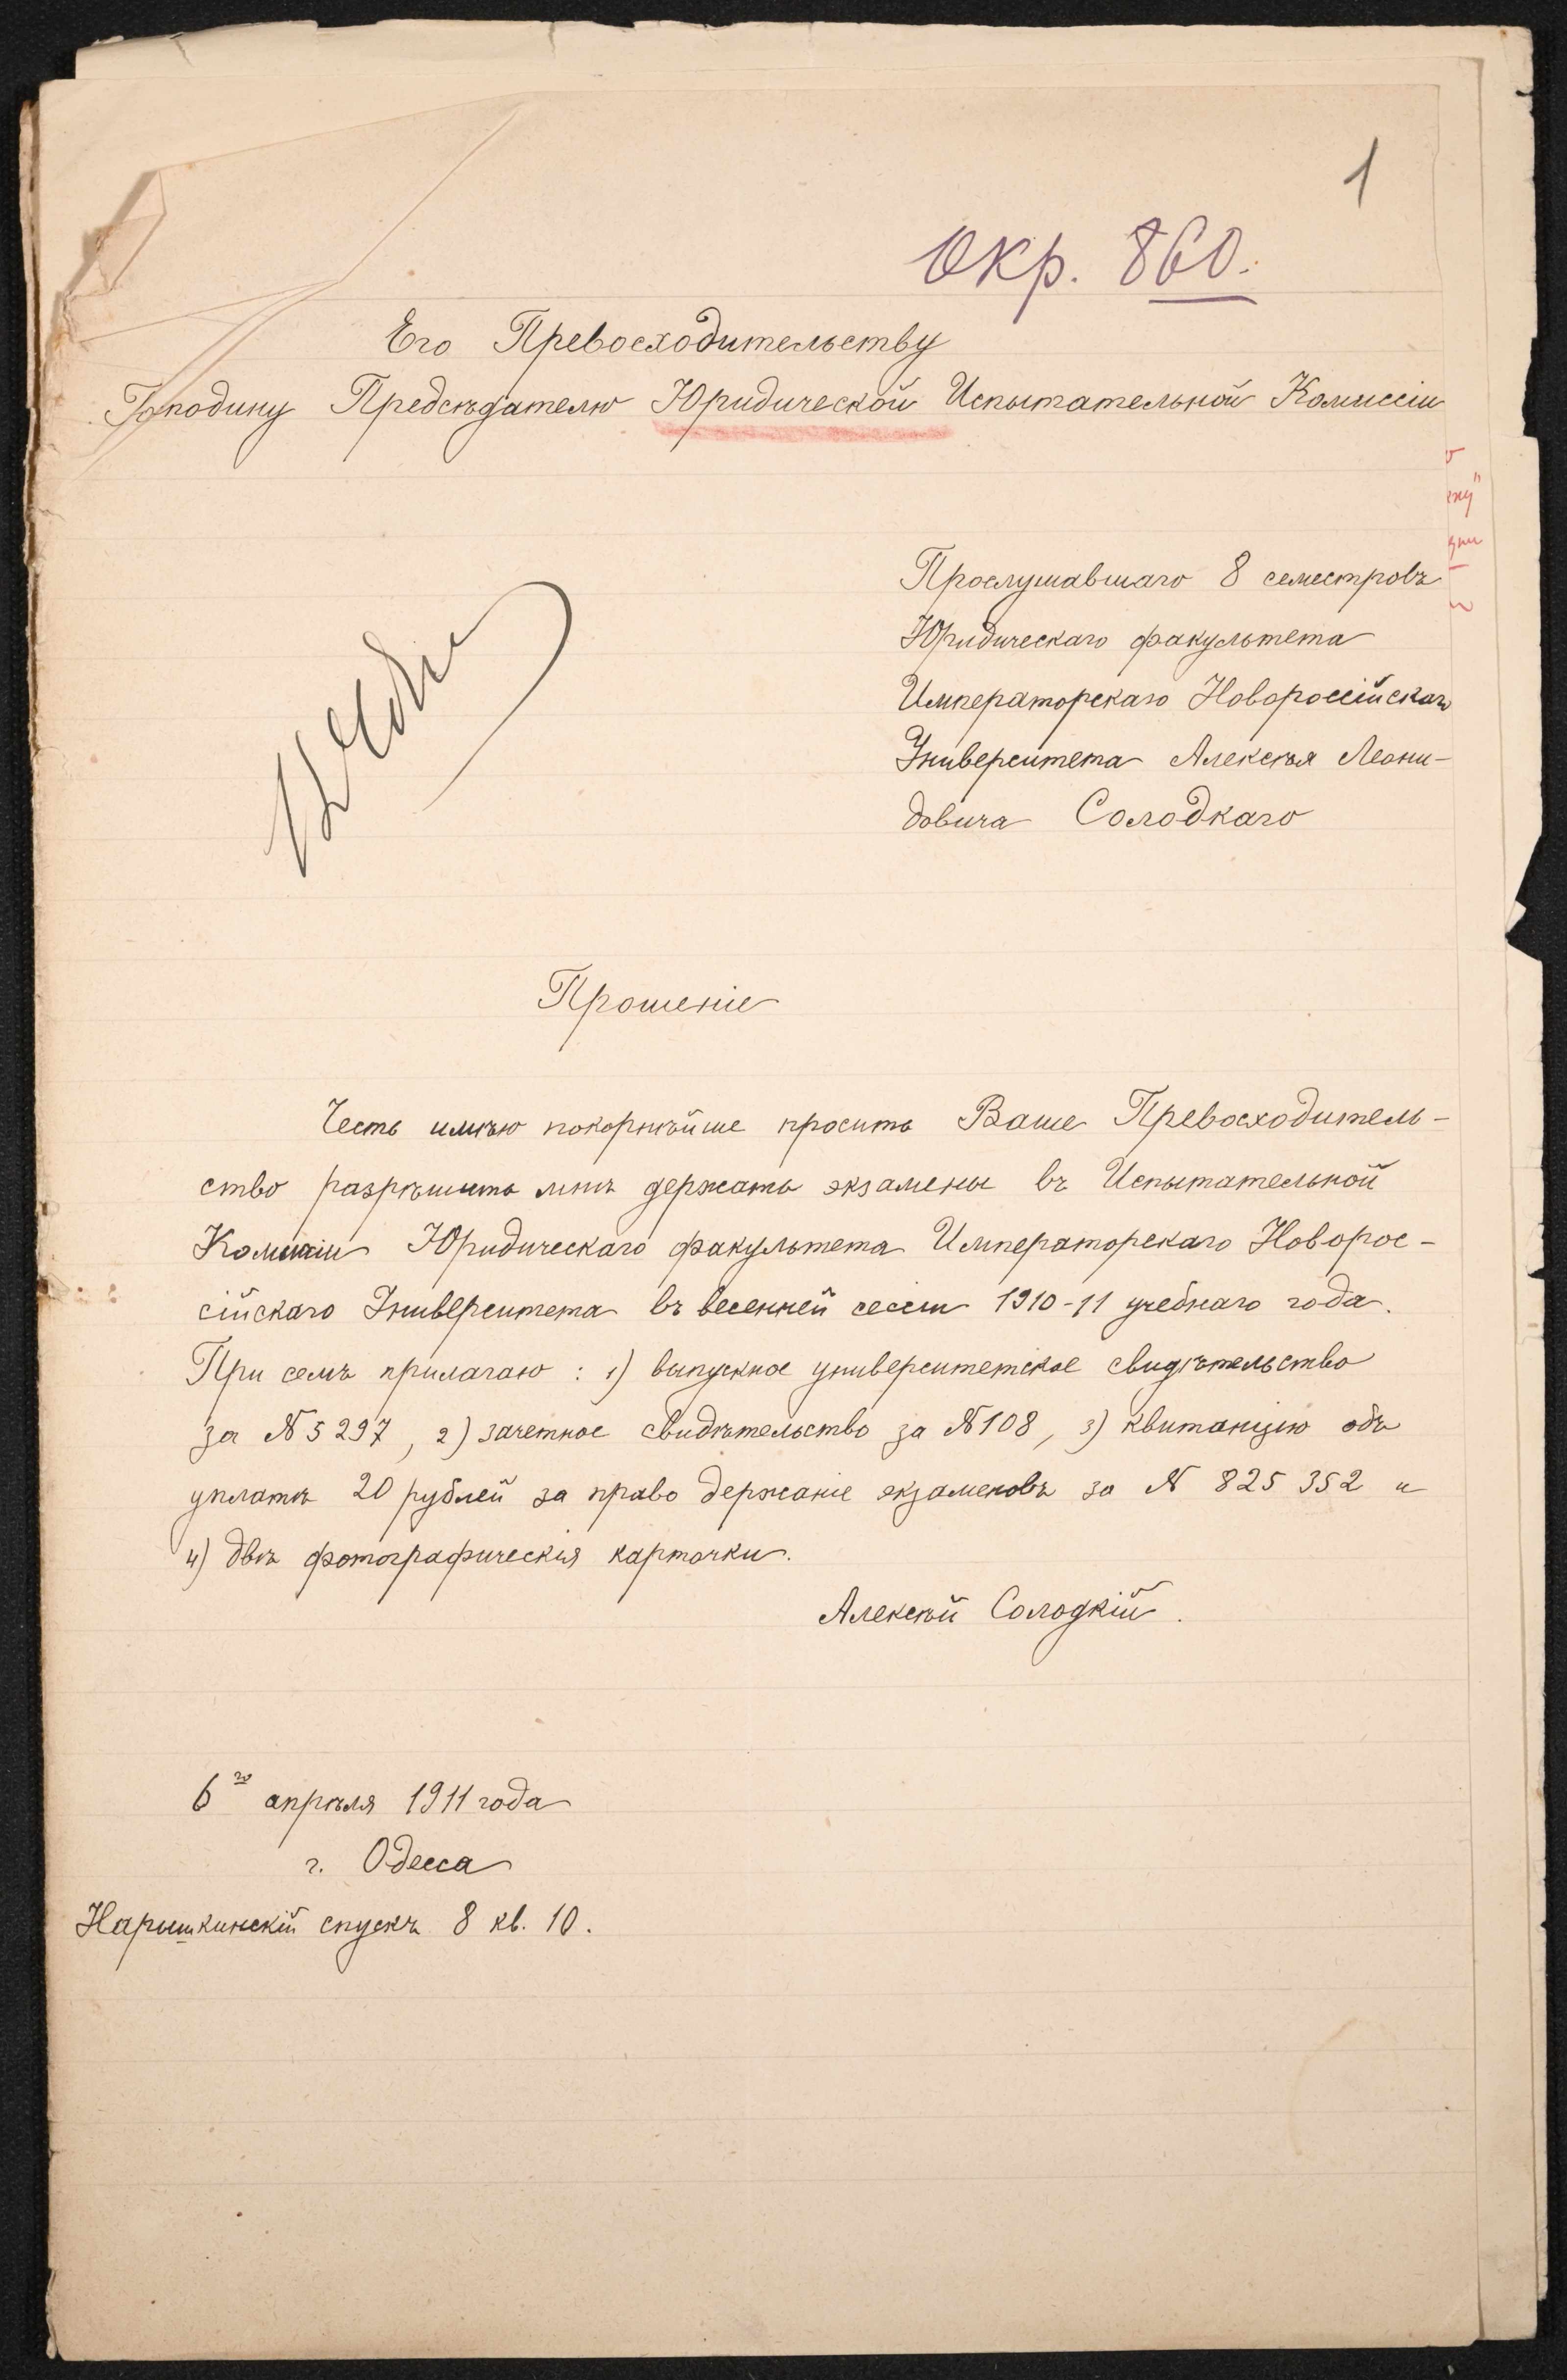 1
Окр. 860.
Его Превосходительству
Господину Предсѣдателю Юридической Испытательной Комиссіи
Прослушавшаго 8 семестровъ
Юридическаго факультета
Императорскаго Новороссійскаго
Университета Алексѣя Леони-
довича Солодкаго
Прошеніе
Честь имѣю покорнѣйше просить Ваше Превосходитель-
ство разрѣшить мнѣ держать экзамены въ Испытательной
Комиссіи Юридическаго факультета Императорскаго Новорос-
сійскаго Университета въ весенней сессіи 1910-11 учебнаго года.
При семъ прилагаю : 1) выпускное университетское свидѣтельство
за № 5297, 2) зачетное свидѣтельство за № 108, 3) квитанцію объ
уплатѣ 20 рублей за право держаніе экзаменовъ за № 825352 и
4) двѣ фотографическія карточки.
Алексѣй Солодкій.
6го апрѣля 1911 года
г. Одесса
Нарышкинскій спускъ 8 кв. 10.